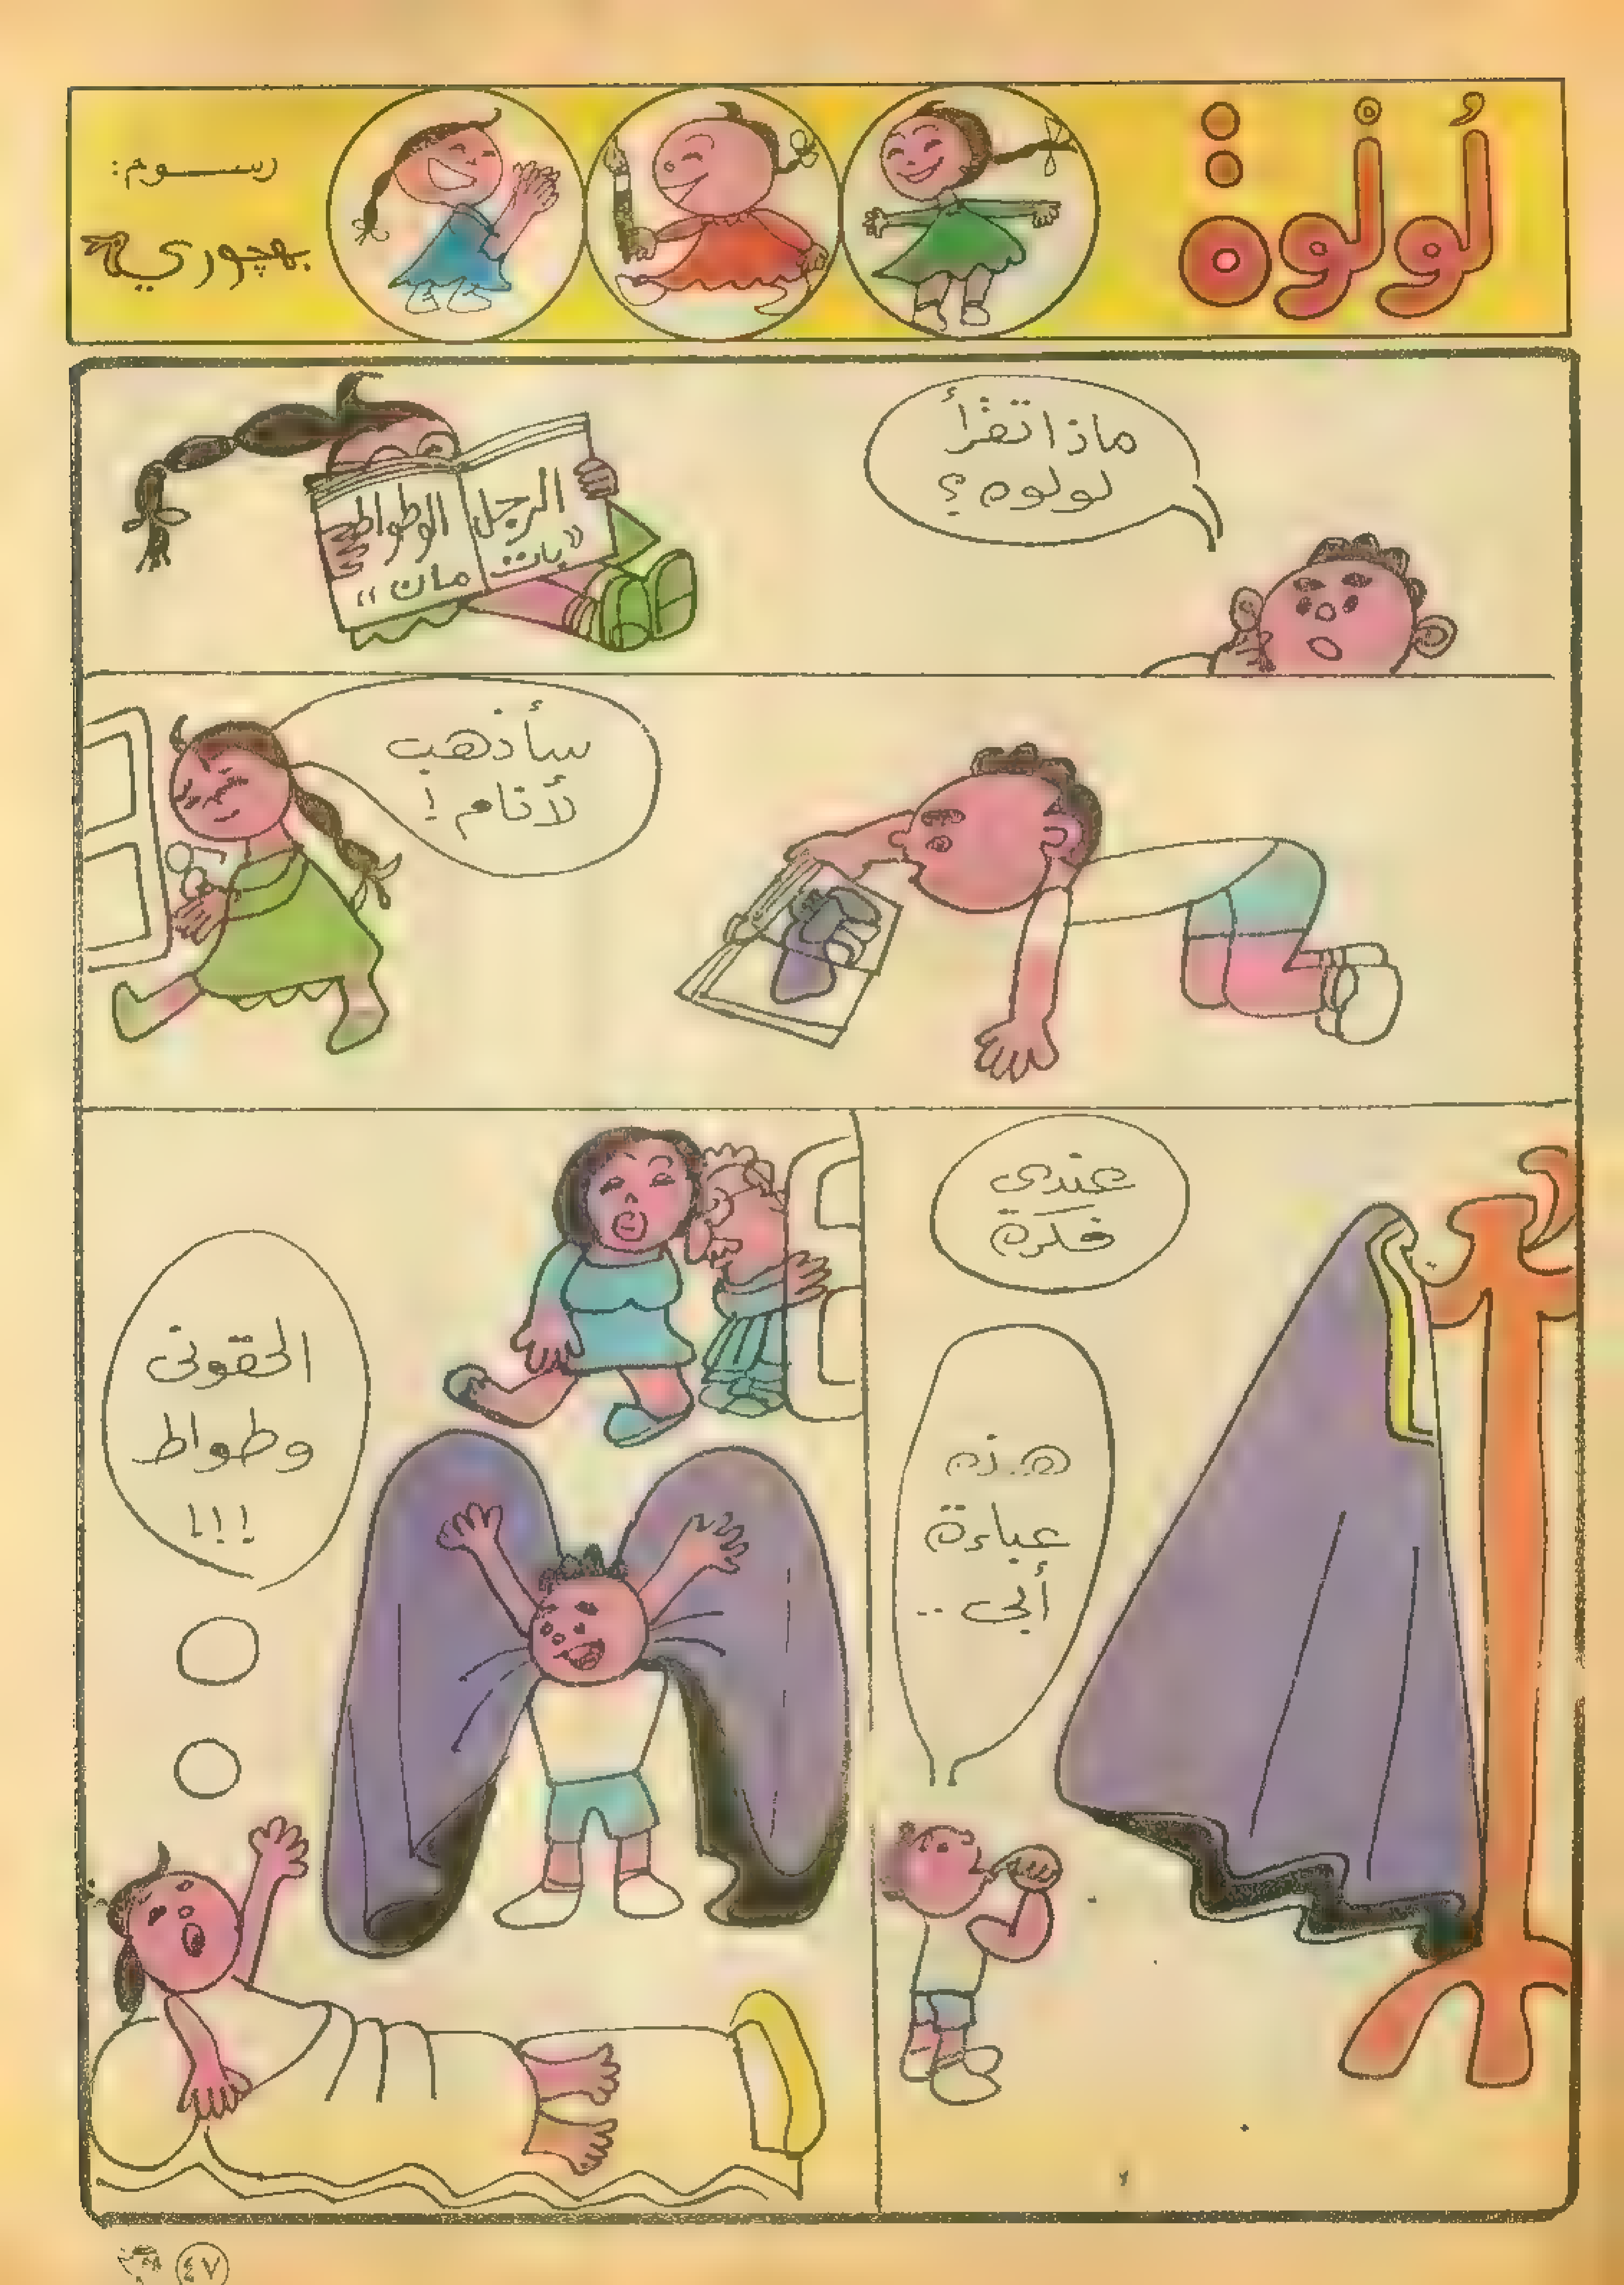 لُولْوة
رسوم:
بهجوري
ماذا تقرأ
لولوه ؟
الرجل الوطواط
«بات مان»
سأذهب
لأنام !
عندي
فكرة
هذه
عباءة
أبى ..
الحقونى
وطواط
!!!
٤٧